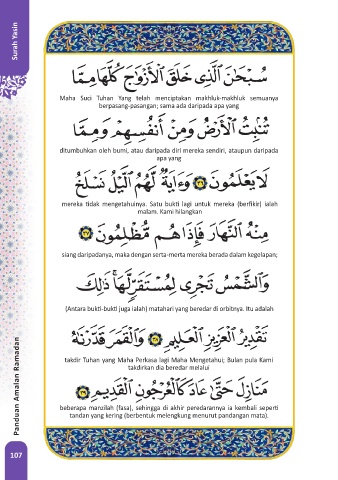 Surah Yasin
سُبْحَٰنَ ٱلَّذِى خَلَقَ ٱلْأَزْوَٰجَ كُلَّهَا مِمَّا
Maha Suci Tuhan Yang telah menciptakan makhluk-makhluk semuanya
berpasang-pasangan; sama ada daripada apa yang
تُنۢبِتُ ٱلْأَرْضُ وَمِنْ أَنفُسِهِمْ وَمِمَّا
ditumbuhkan oleh bumi, atau daripada diri mereka sendiri, ataupun daripada
apa yang
لَا يَعْلَمُونَ ٣٦ وَءَايَةٌ لَّهُمُ ٱلَّيْلُ نَسْلَخُ
mereka tidak mengetahuinya. Satu bukti lagi untuk mereka (berfikir) ialah
malam. Kami hilangkan
مِنْهُ ٱلنَّهَارَ فَإِذَا هُم مُّظْلِمُونَ ٣٧
siang daripadanya, maka dengan serta-merta mereka berada dalam kegelapan;
وَٱلشَّمْسُ تَجْرِى لِمُسْتَقَرٍّ لَّهَا ۚ ذَٰلِكَ
(Antara bukti-bukti juga ialah) matahari yang beredar di orbitnya. Itu adalah
تَقْدِيرُ ٱلْعَزِيزِ ٱلْعَلِيمِ ٣٨ وَٱلْقَمَرَ قَدَّرْنَٰهُ
takdir Tuhan yang Maha Perkasa lagi Maha Mengetahui; Bulan pula Kami
takdirkan dia beredar melalui
مَنَازِلَ حَتَّىٰ عَادَ كَٱلْعُرْجُونِ ٱلْقَدِيمِ ٣٩
beberapa manzilah (fasa), sehingga di akhir peredarannya ia kembali seperti
tandan yang kering (berbentuk melengkung menurut pandangan mata).
Panduan Amalan Ramadan
107